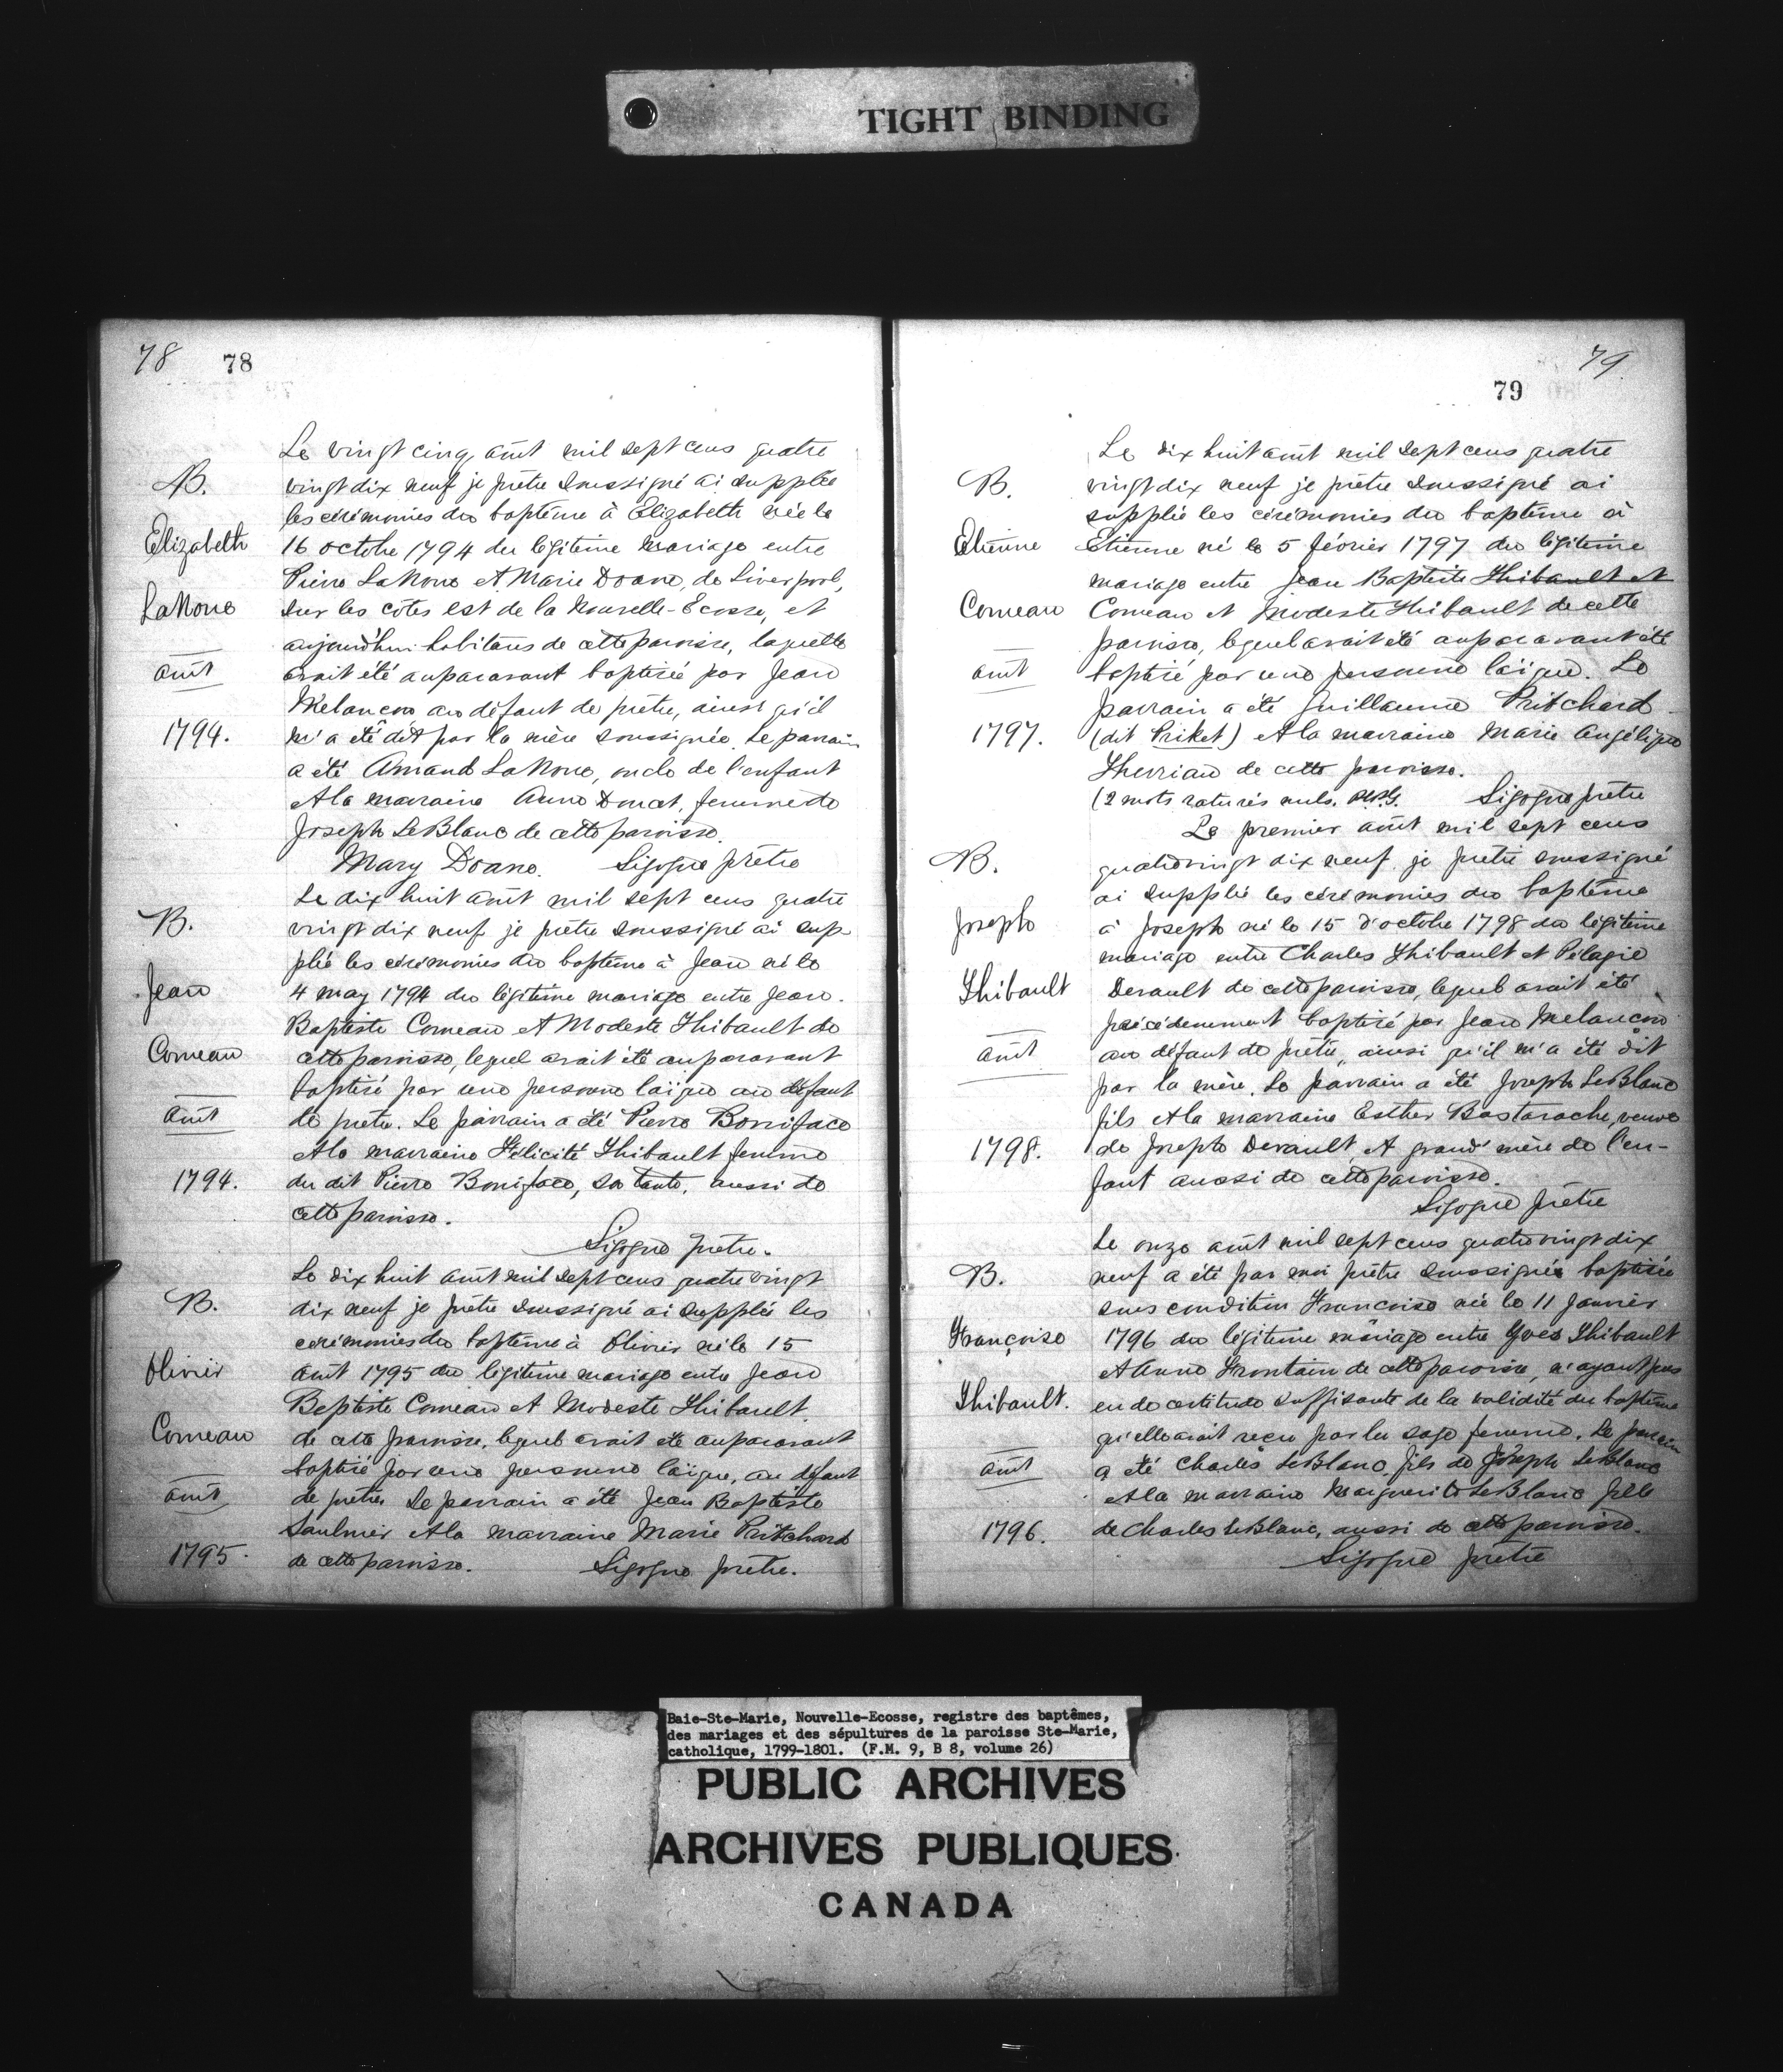 TIGHT BINDING
78 78
Le vingt cinq août mil sept cens quatre
B. vingt dix neuf je prêtre soussigné ai supplée
les cérémonies du baptême à Elizabeth née le
Elizabeth 16 octobre 1794 du légitime mariage entre
Pierre LaNoue et Marie Doane, de Liverpool,
LaNoue sur les côtes est de la Nouvelle-Ecosse, et
aujourd'hui habitans de cette paroisse, laquelle
août avait été auparavant baptisée par Jean
Melancon au défaut de prêtre, ainsi qu'il
1794. m'a été dit par la mère soussignée. Le parrain
a été Amand LaNoue, oncle de l'enfant
et la marraine Anne Doucet, femme de
Joseph LeBlanc de cette paroisse.
Mary Doane. Sigogne prêtre
Le dix huit août mil sept cens quatre
B. vingt dix neuf je prêtre soussigné ai sup-
plié les cérémonies du baptême à Jean né le
Jean 4 may 1794 du légitime mariage entre Jean
Baptiste Comeau et Modeste Thibault de
Comeau cette paroisse, lequel avait été auparavant
baptisé par une personne laïque au défaut
août de prêtre. Le parrain a été Pierre Boniface
et la marraine Félicité Thibault femme
1794. du dit Pierre Boniface, sa tante, aussi de
cette paroisse.
Sigogne prêtre.
Le dix huit août mil sept cens quatre vingt
B. dix neuf je prêtre soussigné ai supplée les
cérémonies du baptême à Olivier né le 15
Olivier août 1795 du légitime mariage entre Jean
Baptiste Comeau et Modeste Thibault
Comeau de cette paroisse, lequel avait été auparavant
baptisé par une personne laïque, au défaut
août de prêtre. Le parrain a été Jean Baptiste
Saulnier et la marraine Marie Pritchard
1795. de cette paroisse. Sigogne prêtre.
79
79
Le dix huit août mil sept cens quatre
B. vingt dix neuf je prêtre soussigné ai
supplié les cérémonies du baptême à
Etienne Etienne né le 5 février 1797 du légitime
mariage entre Jean Baptiste Thibault et
Comeau Comeau et Modeste Thibault de cette
paroisse, lequel avait été auparavant été
août baptisé par une personne laïque. Le
parrain a été Guillaume Pritchard
1797. (dit Priket) et la marraine Marie Angélique
Therriau de cette paroisse.
(2 mots raturés nuls. Sigogne prêtre
Le premier août mil sept cens
B. quatre vingt dix neuf je prêtre soussigné
ai supplié les cérémonies du baptême
Joseph à Joseph né le 15 d'octobre 1798 du légitime
mariage entre Charles Thibault et Pélagie
Thibault Derault de cette paroisse, lequel avait été
précédemment baptisé par Jean Melancon
août au défaut de prêtre, ainsi qu'il m'a été dit
par la mère. Le parrain a été Joseph LeBlanc
fils et la marraine Esther Bastarache, veuve
1798. de Joseph Derault et grand' mère de l'en-
fant aussi de cette paroisse.
Sigogne prêtre
Le onze août mil sept cens quatre vingt dix
B. neuf a été par moi prêtre soussigné baptisée
sous condition Françoise née le 11 Janvier
Françoise 1796 du légitime mariage entre Yves Thibault
et Anne Frontain de cette paroisse, n'ayant pas
Thibault. eu de certitude suffisante de la validité du baptême
qu'elle avait reçu par la sage femme. Le parrain
août a été Charles LeBlanc, fils de Joseph LeBlanc
et la marraine Marguerite LeBlanc fille
1796. de Charles LeBlanc, aussi de cette paroisse.
Sigogne prêtre
Baie-Ste-Marie, Nouvelle-Ecosse, registre des baptêmes,
des mariages et des sépultures de la paroisse Ste-Marie,
catholique, 1799-1801. (F.M. 9, B 8, volume 26)
PUBLIC ARCHIVES
ARCHIVES PUBLIQUES
CANADA